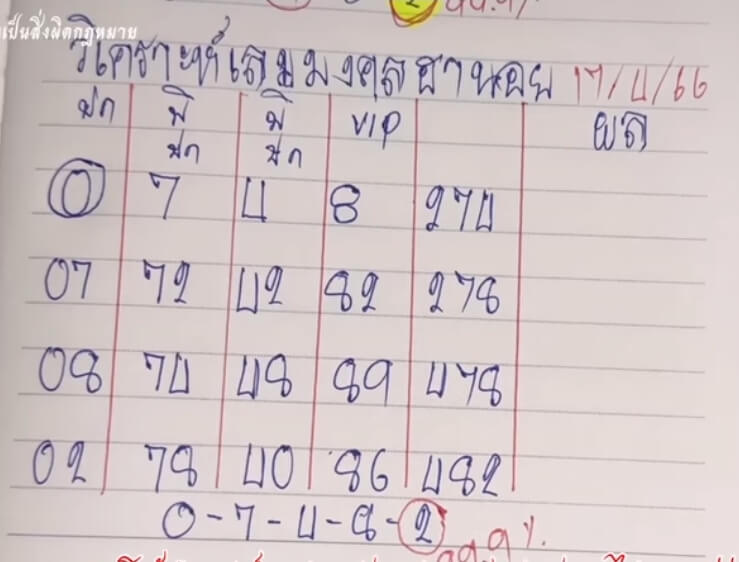 เป็นสิ่งผิดกฎหมาย
2 99.9%
วิเคราะห์เลขมงคลฮานอย 17/4/66
ปก พิ พิ VIP ผล
ปก ปก
0 7 4 8 274
07 72 42 82 278
08 74 48 89 478
02 78 40 86 482
0-7-4-8-2 99.9%